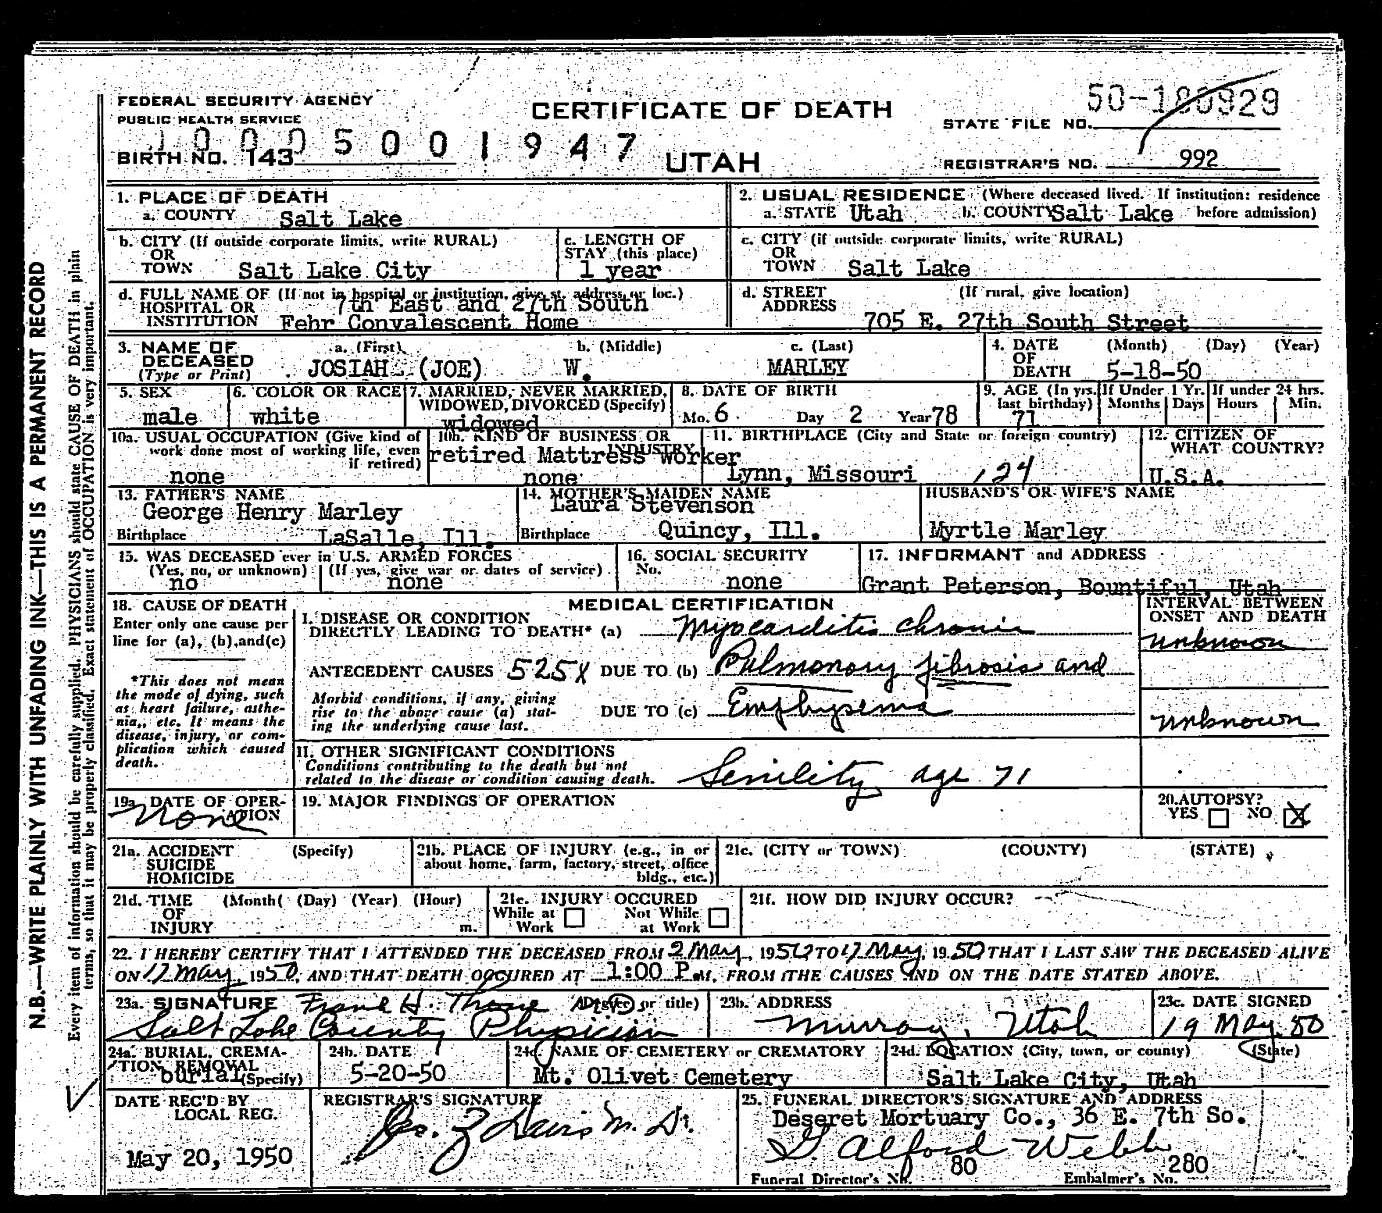 FEDERAL SECURITY AGENCY
PUBLIC HEALTH SERVICE
CERTIFICATE OF DEATH
UTAH
50-180929
STATE FILE NO.
BIRTH NO. 143
10005001947
REGISTRAR'S NO. 992
1. PLACE OF DEATH
a. COUNTY Salt Lake
2. USUAL RESIDENCE (Where deceased lived. If institution: residence before admission)
a. STATE Utah b. COUNTY Salt Lake
b. CITY (If outside corporate limits, write RURAL)
OR
TOWN Salt Lake City
c. LENGTH OF
STAY (this place)
1 year
c. CITY (if outside corporate limits, write RURAL)
OR
TOWN Salt Lake
d. FULL NAME OF (If not in hospital or institution, give st. address or loc.)
HOSPITAL OR
INSTITUTION
7th East and 27th South
Fehr Convalescent Home
d. STREET
ADDRESS
(If rural, give location)
705 E. 27th South Street
3. NAME OF
DECEASED
(Type or Print)
a. (First) b. (Middle) c. (Last)
JOSIAH (JOE) W. MARLEY
4. DATE
OF
DEATH
(Month) (Day) (Year)
5-18-50
5. SEX
male
6. COLOR OR RACE
white
7. MARRIED, NEVER MARRIED,
WIDOWED, DIVORCED (Specify)
widowed
8. DATE OF BIRTH
Mo. 6 Day 2 Year 78
9. AGE (In yrs.
last birthday)
71
If Under 1 Yr.
Months Days
If under 24 hrs.
Hours Min.
10a. USUAL OCCUPATION (Give kind of
work done most of working life, even
if retired)
none
10b. KIND OF BUSINESS OR
INDUSTRY
retired Mattress worker
none
11. BIRTHPLACE (City and State or foreign country)
Lynn, Missouri 124
12. CITIZEN OF
WHAT COUNTRY?
U.S.A.
13. FATHER'S NAME
George Henry Marley
Birthplace LaSalle, Ill.
14. MOTHER'S MAIDEN NAME
Laura Stevenson
Birthplace Quincy, Ill.
HUSBAND'S OR WIFE'S NAME
Myrtle Marley
15. WAS DECEASED ever in U.S. ARMED FORCES
(Yes, no, or unknown) (If yes, give war or dates of service)
no none
16. SOCIAL SECURITY
No.
none
17. INFORMANT and ADDRESS
Grant Peterson, Bountiful, Utah
18. CAUSE OF DEATH
Enter only one cause per
line for (a), (b), and (c)
*This does not mean
the mode of dying, such
as heart failure, asthe-
nia,, etc. It means the
disease, injury, or com-
plication which caused
death.
MEDICAL CERTIFICATION
INTERVAL BETWEEN
ONSET AND DEATH
I. DISEASE OR CONDITION
DIRECTLY LEADING TO DEATH* (a) Myocarditis chronic
unknown
ANTECEDENT CAUSES 525X DUE TO (b) Pulmonary fibrosis and
Morbid conditions, if any, giving
rise to the above cause (a) stat-
ing the underlying cause last.
DUE TO (c) Emphysema
unknown
II. OTHER SIGNIFICANT CONDITIONS
Conditions contributing to the death but not
related to the disease or condition causing death.
Senility age 71
19a. DATE OF OPER-
ATION
None
19. MAJOR FINDINGS OF OPERATION
20. AUTOPSY?
YES NO X
21a. ACCIDENT
SUICIDE
HOMICIDE
(Specify)
21b. PLACE OF INJURY (e.g., in or
about home, farm, factory, street, office
bldg., etc.)
21c. (CITY or TOWN) (COUNTY) (STATE)
21d. TIME
OF
INJURY
(Month( (Day) (Year) (Hour)
m.
21e. INJURY OCCURED
While at
Work
Not While
at Work
21f. HOW DID INJURY OCCUR?
22. I HEREBY CERTIFY THAT I ATTENDED THE DECEASED FROM 2 May, 1950 TO 17 May, 1950 THAT I LAST SAW THE DECEASED ALIVE
ON 17 May, 1950, AND THAT DEATH OCCURED AT 1:00 P.M. FROM THE CAUSES AND ON THE DATE STATED ABOVE.
23a. SIGNATURE (Degree or title)
Frank H. Thone M.D.
Salt Lake County Physician
23b. ADDRESS
Murray, Utah
23c. DATE SIGNED
19 May 50
24a. BURIAL, CREMA-
TION REMOVAL
(Specify)
burial
24b. DATE
5-20-50
24c. NAME OF CEMETERY or CREMATORY
Mt. Olivet Cemetery
24d. LOCATION (City, town, or county) (State)
Salt Lake City, Utah
DATE REC'D BY
LOCAL REG.
May 20, 1950
REGISTRAR'S SIGNATURE
Davis M.D.
25. FUNERAL DIRECTOR'S SIGNATURE AND ADDRESS
Deseret Mortuary Co., 36 E. 7th So.
Alford Webb
80 280
Funeral Director's No. Embalmer's No.
N.B.—WRITE PLAINLY WITH UNFADING INK—THIS IS A PERMANENT RECORD
Every item of information should be carefully supplied. PHYSICIANS should state CAUSE OF DEATH in plain
terms, so that it may be properly classified. Exact statement of OCCUPATION is very important.